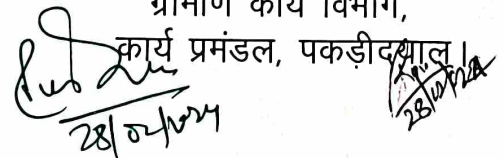 ग्रामीण कार्य विभाग,
कार्य प्रमंडल, पकड़ीदयाल।
28/02/2024